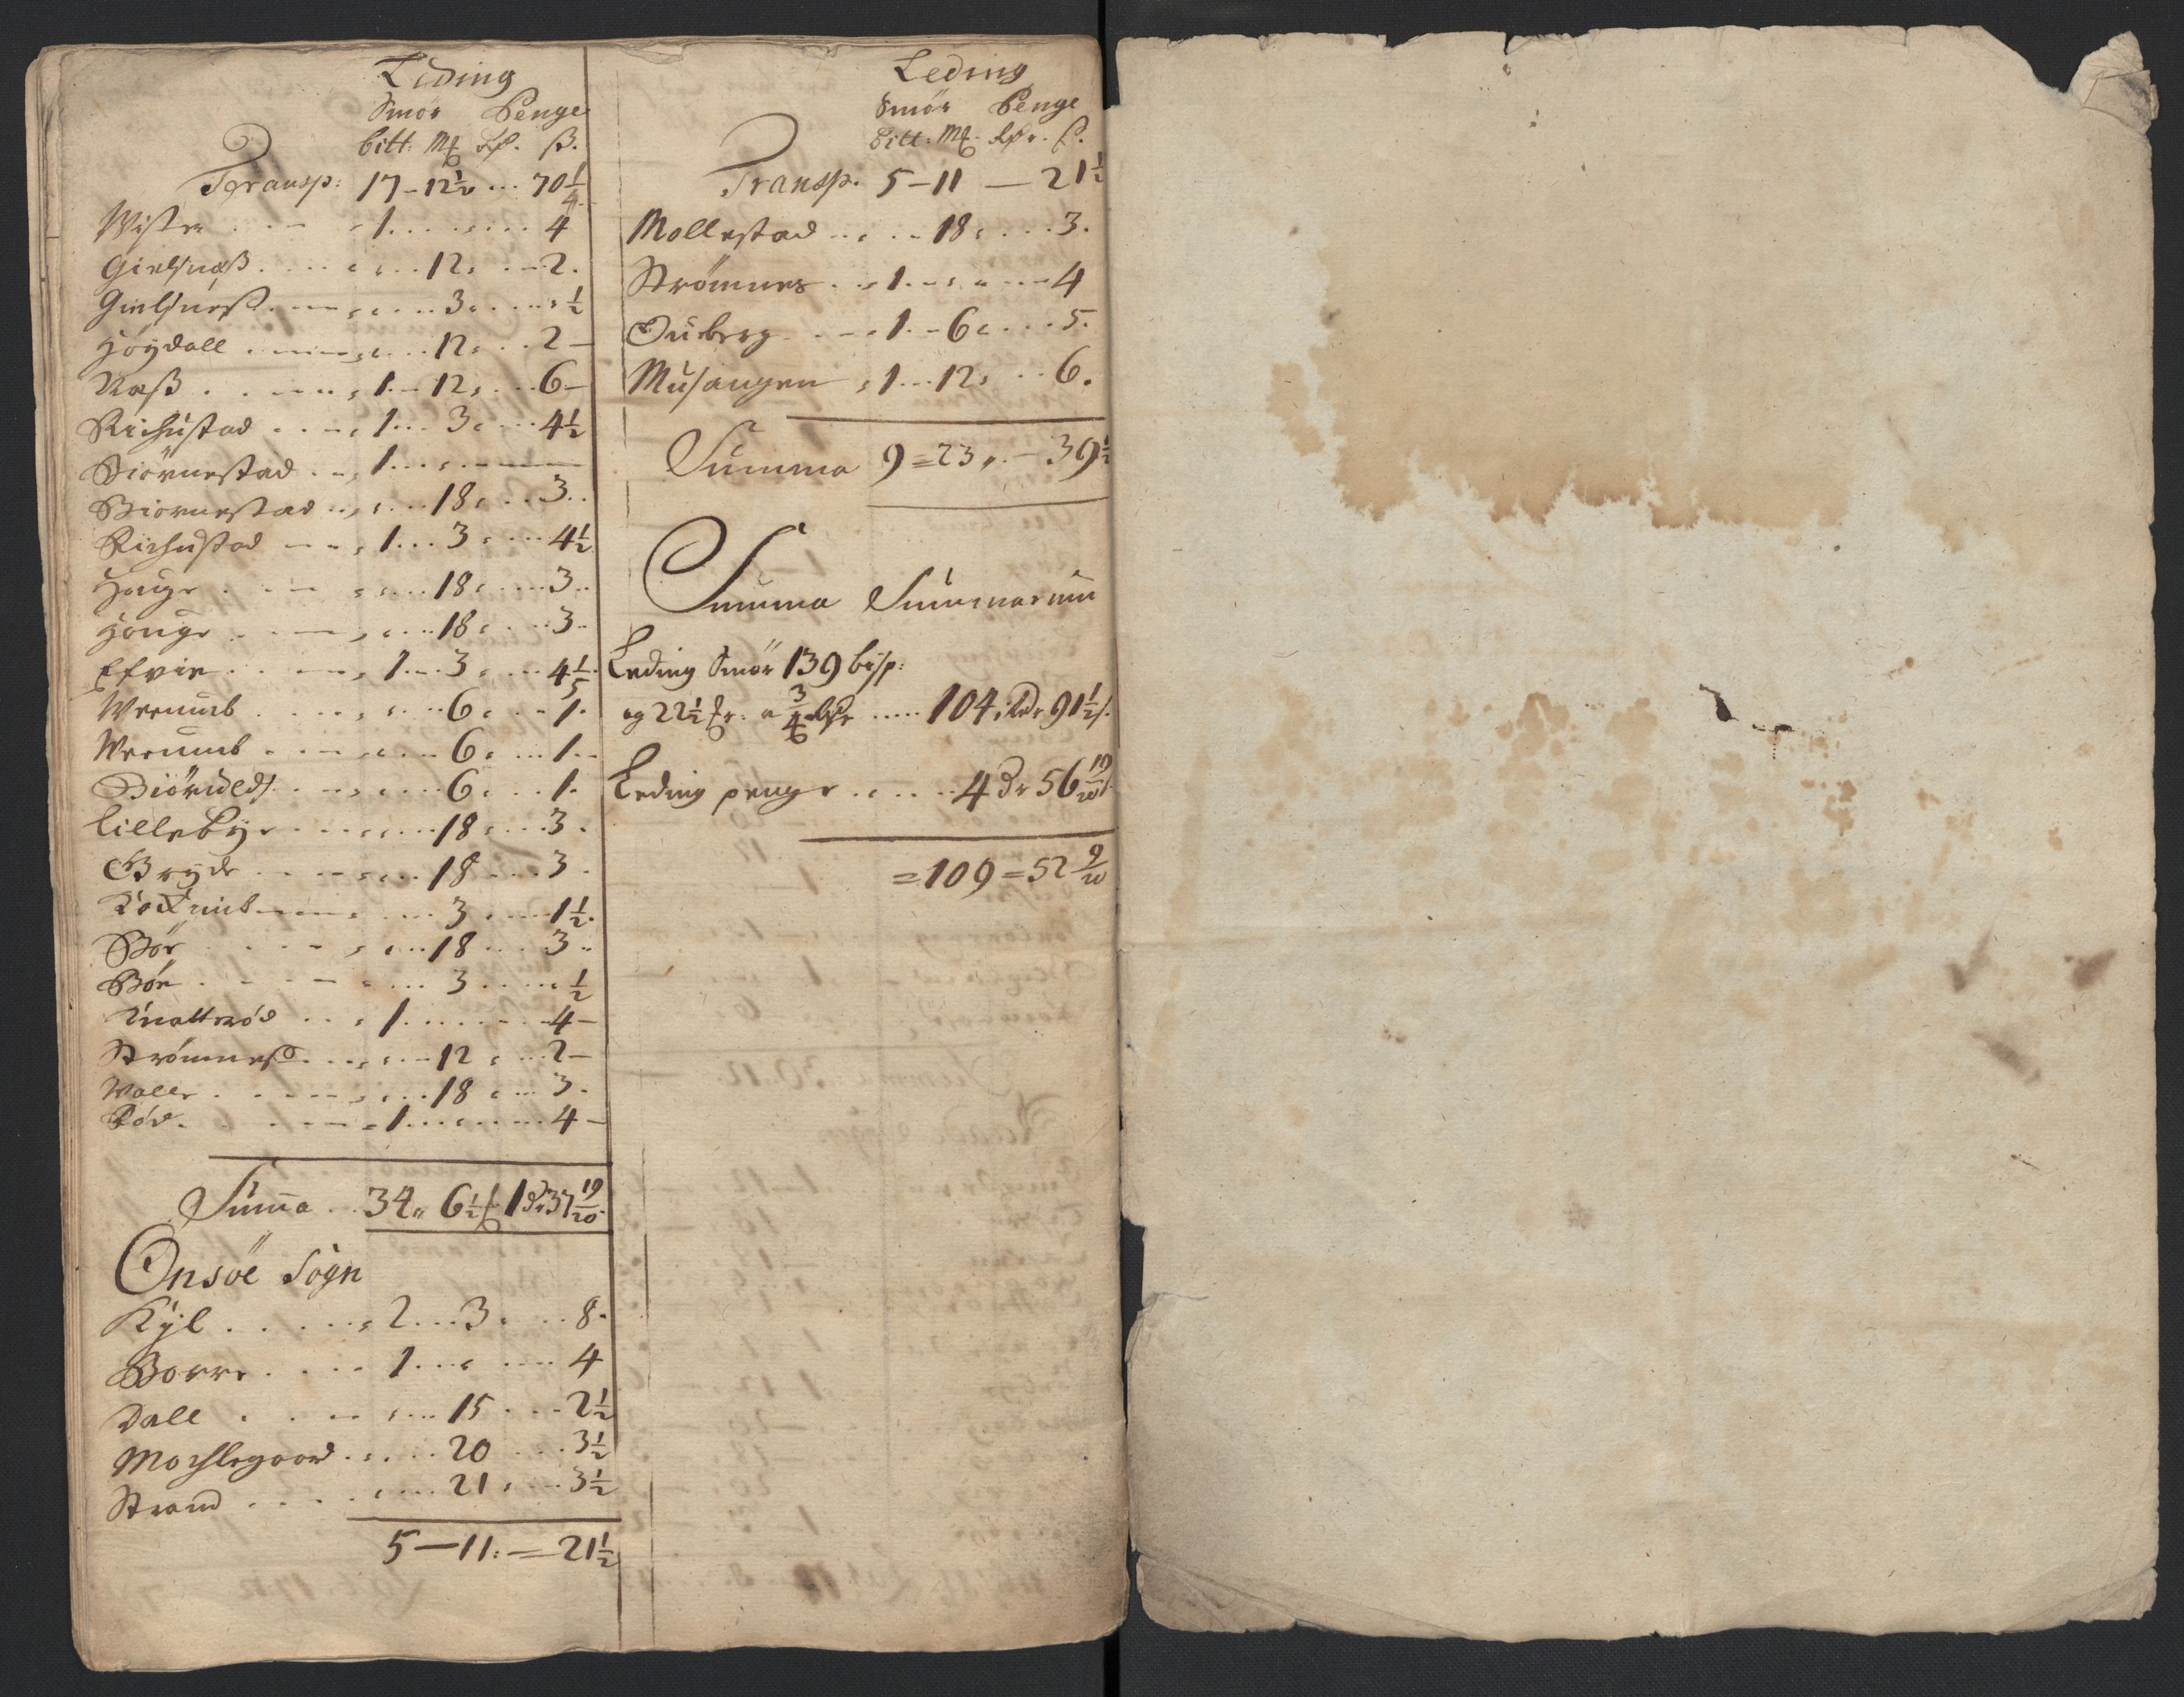 Leding
Smör Penge
bitt: M℔ Rß. ß.
Transp: 17 - 12½ ... 70¼
Wister . . - - 1. . . . . . . 4
Gielsnæß. . . . . . . 12. . - 2.
Gielsness. - - . . . . 3. . . . . ½
Höÿdall . - - - . . . 12. . . 2 -
Næß . . - - . . 1 - 12. . . 6 -
Richustad . . - . 1 . . . 3. . . . 4½
Biörnestad . . - . 1 . . . . - - -
Biornestad . . . . . . 18. . . 3 . .
Richustad - - . . 1 . . . 3 . . . . 4½
Houge . . - - . . . . 18 . . . . 3 . .
Houge . . - - . . . . 18 . . . . 3 -
Efvie . . . - . . 1 . . . 3 . . . . 4⅕
Weeumb . . . . . . . . 6 . . . 1 .
Weeumb . . . - . . . . 6 . . . 1 - -
. . . . . 6 . . . 1 .
Lillebÿe . . . . . . . . 18 . . . . 3 .
Brÿde . . . - . . . . 18 . . . 3 .
. . . . 3 . . . 1½.
Bör . . - - . . . . 18 . . . 3 ..
Bön . . - - . . . . 3 . . . . ½
Knattröd . . . . 1 . . . . . - 4 -
Strömness . . . . . . - 12 . . . 2 -
Walle . . - - - . . . . 18 . . . 3 .
Röd . . . - - . 1 . . . . . . . 4 -
Suma . . 34 " 6½ ℔ 1 dr 37 19/20
Onsöe Sogn
Kÿl . . . . . . 2 . . . 3 . . . 8 .
Borre . . . . 1 . . . . . . . 4
Dall . . . - . . . . 15 . . . . 2½
Mochlegaard . . . . . 20 . . . 3½
Strand . . . . . . . . 21 . . . . 3½
5 — 11: = 21½
Leding
Smör Penge
bitt: M℔. Rßr. ß.
Transp. 5 - 11 — 21½
Mollestad . . . . . 18 . . . . 3.
Strömnes . . . 1 . - . . . - 4
Ouberg . . - . 1 . - 6 . . . . 5.
Musangen . 1 . . . 12 . . . 6.
Summa 9 = 23 " . — 39½
Summa Summarum
Leding Smör 139 bisp:
og 22½ ℔. a ¾ Rßr ..... 104 Rdr 91½ ß
Leding penge . . . . . 4 Dr 56 19/20
= 109 = 52 9/20